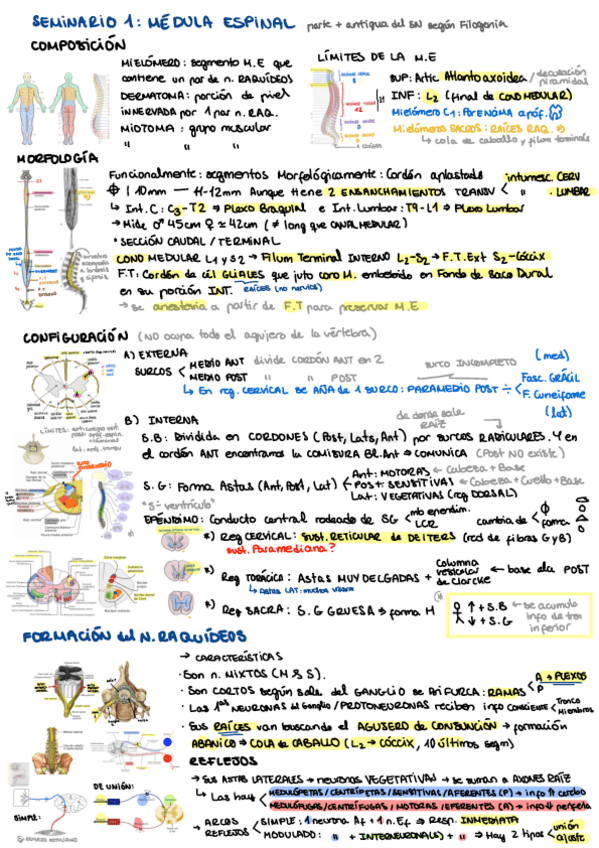 SEMINARIO 1: MÉDULA ESPINAL parte + antigua del SN según Filogenia
COMPOSICIÓN
MIELÓMERO: segmento M.E que
contiene un par de n. RAQUÍDEOS
DERMATOMA: porción de piel
INNERVADA por 1 par n. RAQ.
MIOTOMA: grupo muscular
LÍMITES DE LA M.E
SUP: Artic Atlantoaxoidea / decusación piramidal
INF: L2 (final de CONO MEDULAR)
Mielómero C1: POR ENCIMA apóf.
Mielómeros SACROS: RAÍCES RAQ.
↳ cola de caballo y filum terminale
MORFOLOGÍA
Funcionalmente: segmentos Morfológicamente: Cordón aplastado
ϕ | 10mm — 11-12mm Aunque tiene 2 ENSANCHAMIENTOS TRANSV < intumesc. CERV
" LUMBAR
↳ Int. C: C3-T2 ⇒ Plexo Braquial e Int. Lumbar: T9-L1 ⇒ Plexo Lumbar
→ Mide ♂ 45cm ♀ ≃ 42cm (≠ long que CANAL MEDULAR)
• SECCIÓN CAUDAL / TERMINAL
CONO MEDULAR L1 y S2 → Filum Terminal INTERNO L2-S2 → F.T. Ext S2-Cóccix
F.T: Cordón de cél GLIALES que junto con M. embebido en Fondo de Saco Dural
en su porción INT. RAÍCES (no nervios)
→ se anestesia a partir de F.T para preservar M.E
CONFIGURACIÓN (NO ocupa todo el agujero de la vértebra)
A) EXTERNA
SURCOS < MEDIO ANT divide CORDÓN ANT en 2
MEDIO POST " " POST
SURCO INCOMPLETO
(med)
↳ En reg. CERVICAL SE AÑADE 1 SURCO: PARAMEDIO POST ÷ < Fasc. GRÁCIL
F. Cuneiforme
(lat)
LÍMITES:
B) INTERNA
de donde sale RAÍZ
S.B: Dividida en CORDONES (Post, Lats, Ant) por SURCOS RADICULARES. Y en
el cordón ANT encontramos la COMISURA BL. Ant ⇒ COMUNICA (Post NO existe)
S.G: Forma Astas (Ant, Post, Lat)
Ant: MOTORAS ← Cabeza + Base
Post: SENSITIVAS ← Cabeza + Cuello + Base
Lat: VEGETATIVAS (reg DORSAL)
"5º ventrículo"
EPÉNDIMO: Conducto central rodeado de SG < mb ependim.
LCR
cambia de forma
*) Reg CERVICAL: SUST. RETICULAR de DEITERS (red de fibras G y B)
sust. Paramediana?
*) Reg TORÁCICA: Astas MUY DELGADAS + Columna vesicular de Clarcke ← base dla POST
↳ Astas LAT: mucha víscera
*) Reg SACRA: S.G GRUESA ⇒ forma H
↑ + S.B ← se acumula
↓ + S.G info de tren
inferior
FORMACIÓN del N. RAQUÍDEOS
→ CARACTERÍSTICAS
• Son n. MIXTOS (M y S).
• Son CORTOS según sale del GANGLIO se BIFURCA: RAMAS < A → PLEXOS
P
• Las 1as NEURONAS del Ganglio / PROTONEURONAS reciben info CONSCIENTE < Tronco
Miembros
• Sus RAÍCES van buscando el AGUJERO DE CONJUNCIÓN → formación
ABANICO ⇒ COLA DE CABALLO (L2 → CÓCCIX, 10 últimos segm)
REFLEJOS
→ Sus ASTAS LATERALES → neuronas VEGETATIVAS → se suman a AXONES RAÍZ
↳ Las hay < MEDULÓPETAS/CENTRÍPETAS/SENSITIVAS/AFERENTES (P) → info ↑ cerebro
MEDULÓFUGAS/CENTRÍFUGAS/MOTORAS/EFERENTES (A) → info ↓ periferia
→ ARCOS REFLEJOS < SIMPLE: 1 neurona Af + 1 n. Ef ⇒ Resp. INMEDIATA
MODULADO: " + INTERNEURONA(S) + " ⇒ Hay 2 tipos < unión
ajuste
DE UNIÓN:
SIMPLE: